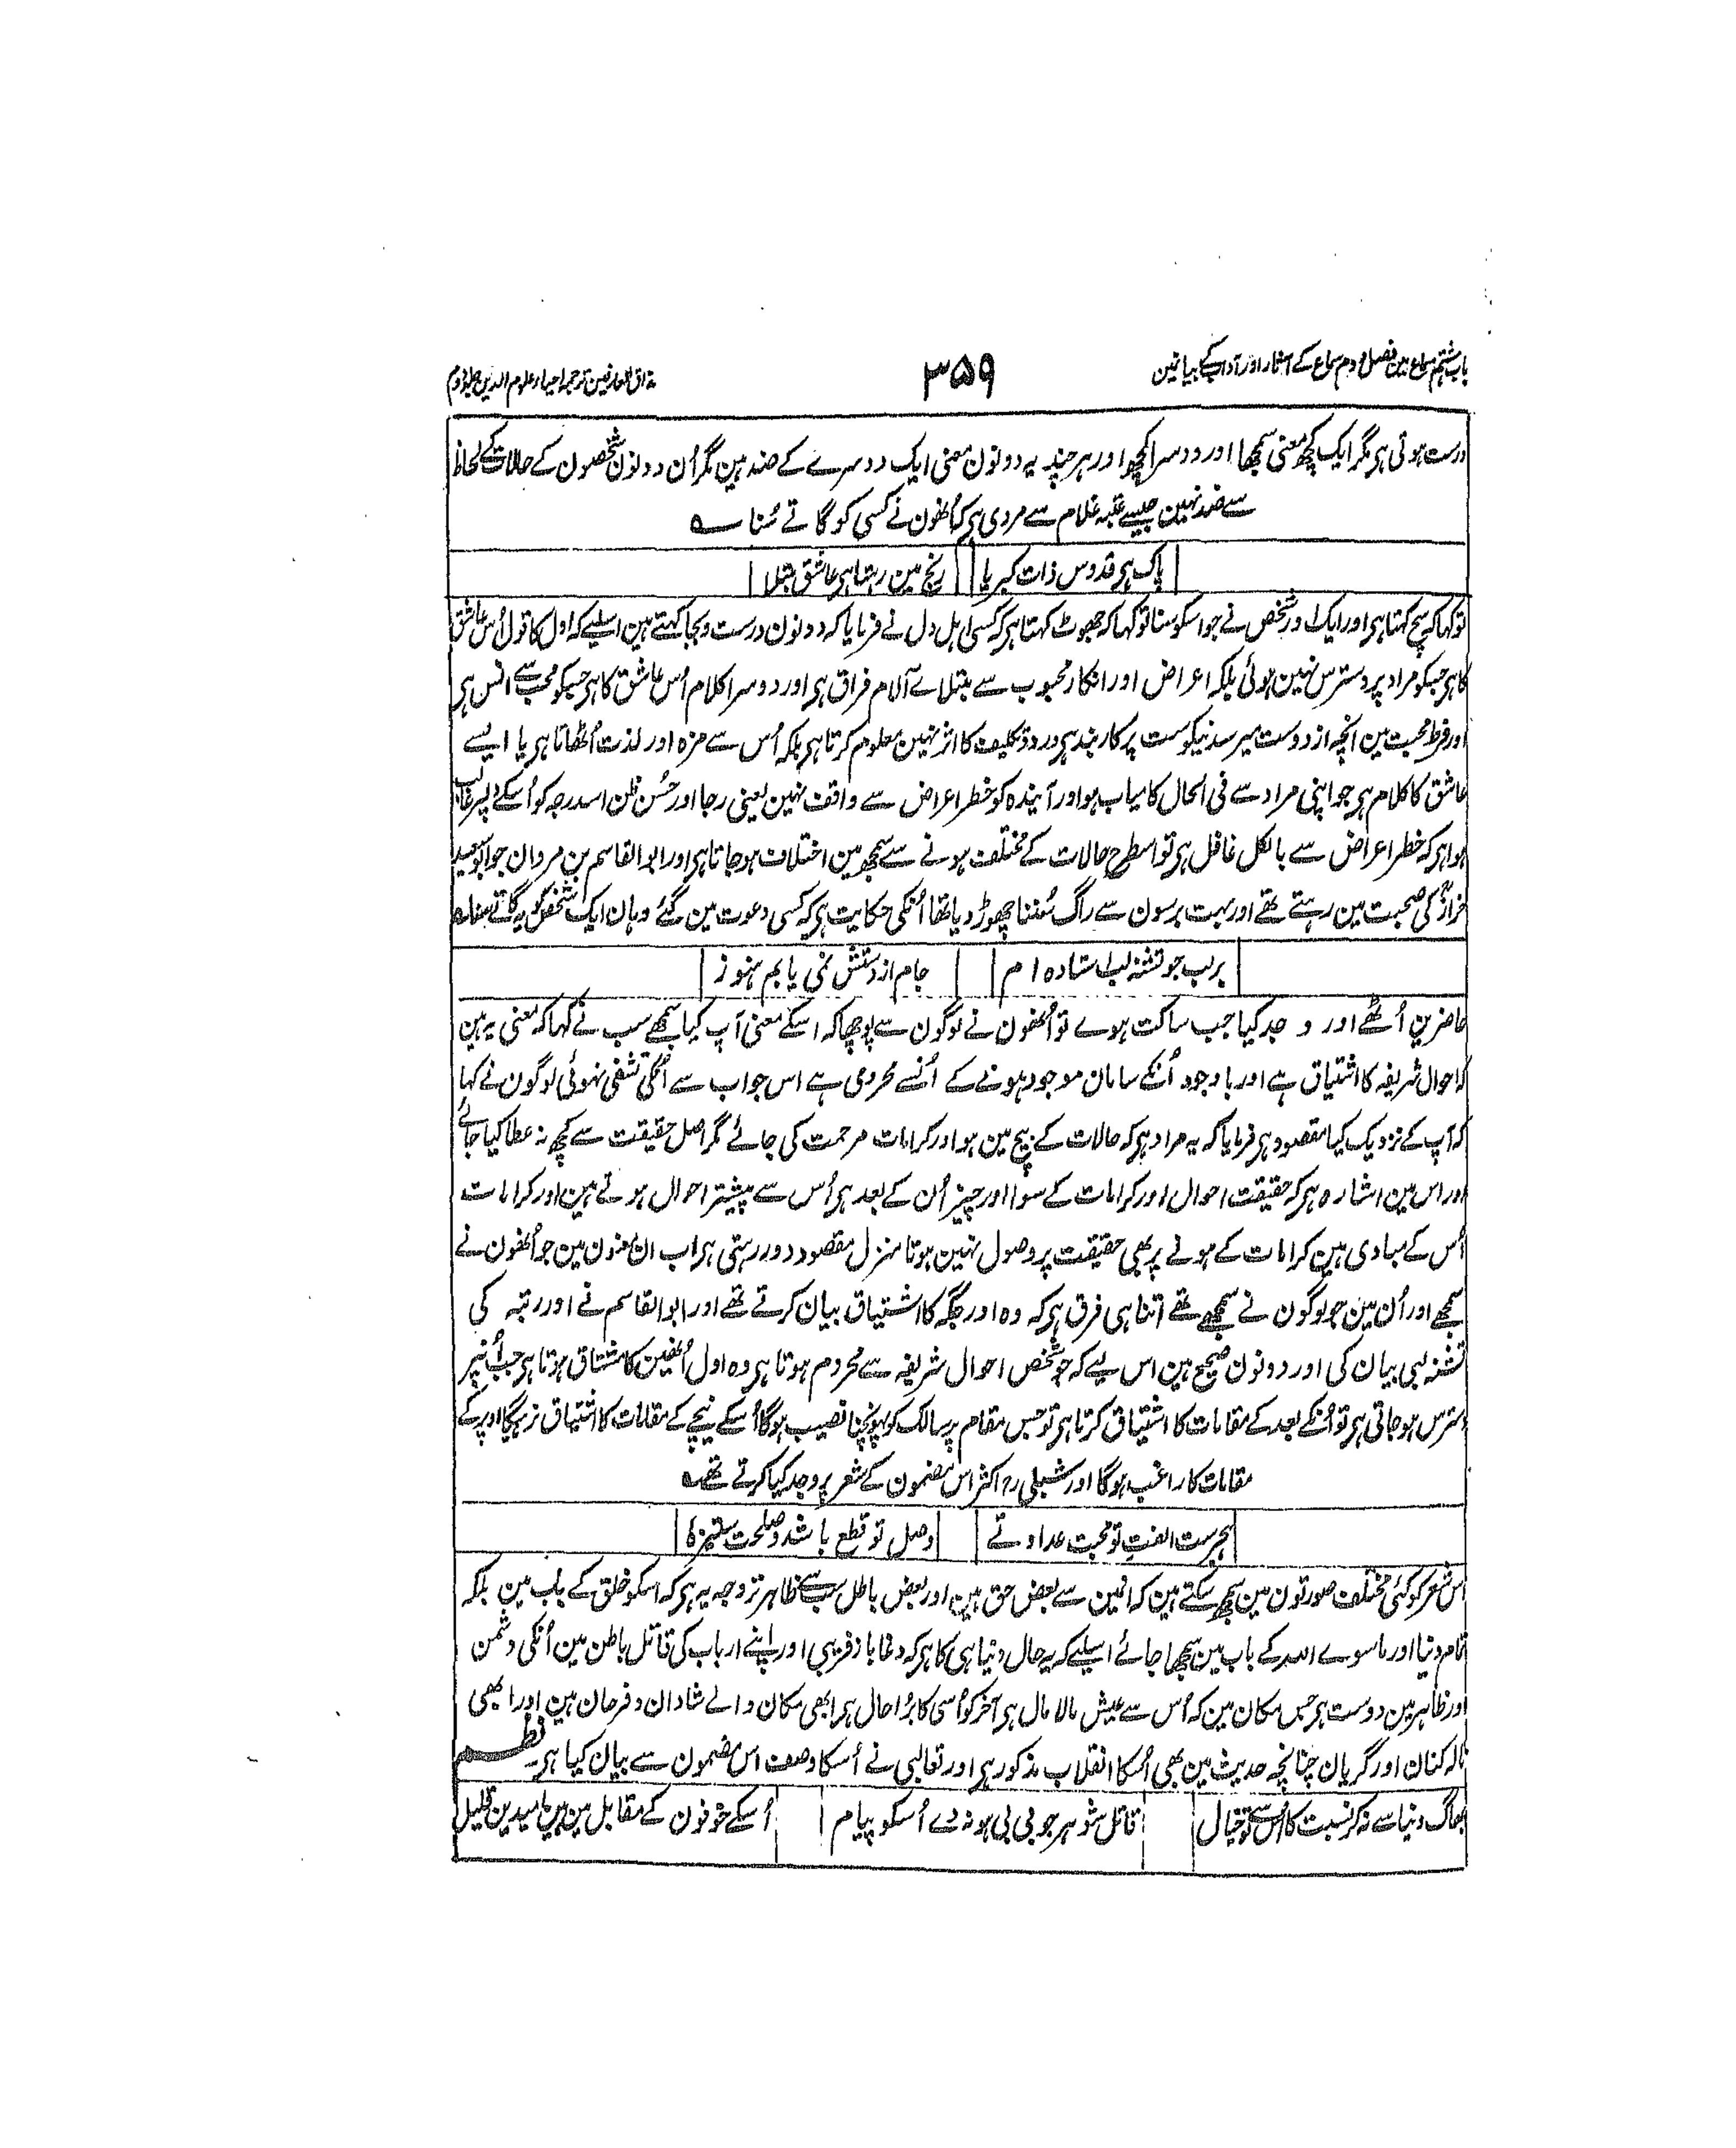 باب ہشتم سماع مین فصل دوم سماع کے آثار اور آداب کے بیان مین
۳۵۹
مذاق العارفین ترجمہ احیاء علوم الدین جلد دوم
درست ہوتی ہی مگر ایک کچھ معنی سمجھا اور دوسرا کچھ اور ہر چند یہ دونون معنی ایک دوسرے کے ضد ہین مگر اُن دونون شخصون کے حالات کے لحاظ
سے ضد نہین جیسے عتبہ غلام سے مروی ہی کہ اُنھون نے کسی کو گاتے سُنا ؎
پاک ہی قدوس ذات کبریا
رنج مین رہتا ہی عاشق مبتلا
تو کہا کہ سچ کہتا ہی اور ایک اور شخص نے جو اسکو سنا تو کہا کہ جھوٹ کہتا ہی کسی اہل دل نے فرمایا کہ دونون درست و بجا کہتے ہین اسلیے کہ اول کا قول اُس عاشق
کا ہی جسکو مراد پر دسترس نہین ہوئی بلکہ اعراض اور انکار محبوب سے مبتلاے آلام فراق ہی اور دوسرا کلام اُس عاشق کا ہی جسکو محب سے انس ہی
اور فرط محبت مین آنچہ از دوست میرسد نیکوست پر کاربند ہی درد و تکلیف کا اثر نہین معلوم کرتا ہی بلکہ اُس سے مزہ اور لذت اُٹھاتا ہی یا ایسے
عاشق کا کلام ہی جو اپنی مراد سے فی الحال کامیاب ہو اور آیندہ کو خطر اعراض سے واقف نہین یعنی رجا اور حُسن ظن اسدرجہ کو اُسکے دلپر غالب
ہوا ہی کہ خطر اعراض سے بالکل غافل ہی تو اسطرح حالات کے مختلف ہونے سے سمجھ مین اختلاف ہوجاتا ہی اور ابو القاسم بن مروان جو ابو سعید
خرازؒ کی صحبت مین رہتے تھے اور بہت برسون سے راگ سُننا چھوڑ دیا تھا اُنکی حکایت ہی کہ کسی دعوت مین گئے وہان ایک شخص کو یہ گاتے سنا ؎
بر لب جو تشنہ لب استادہ ام
جام از دستش نمی یابم ہنوز
حاضرین اُٹھے اور وجد کیا جب ساکت ہوے تو اُنھون نے لوگون سے پوچھا کہ اسکے معنی آپ کیا سمجھے سب نے کہا کہ معنی یہ ہین
کہ احوال شریفہ کا اشتیاق ہے اور باوجود اُنکے سامان موجود ہونے کے اُنسے محرومی ہے اس جواب سے اُنکی تشفی نہوئی لوگون نے کہا
کہ آپ کے نزدیک کیا مقصود ہی فرمایا کہ یہ مراد ہی کہ حالات کے بیچ مین ہو اور کرامات مرحمت کی جائے مگر اصل حقیقت سے کچھ نہ عطا کیا جائے
اور اس مین اشارہ ہی کہ حقیقت احوال اور کرامات کے سوا اور چیز اُن کے بعد ہی اُس سے پیشتر احوال ہوتے ہین اور کرامات
اُس کے مبادی ہین کرامات کے ہونے پر بھی حقیقت پر وصول نہین ہوتا منزل مقصود دور رہتی ہی اب ان معنون مین جو اُنھون نے
سمجھے اور اُن مین جو لوگون نے سمجھے تھے اتنا ہی فرق ہی کہ وہ اور جگہ کا اشتیاق بیان کرتے تھے اور ابو القاسم نے اور رتبہ کی
تشنہ لبی بیان کی اور دونون صحیح ہین اس لیے کہ جو شخص احوال شریفہ سے محروم ہوتا ہی وہ اول اُنھین کا مشتاق ہوتا ہی جب اُنپر
دسترس ہوجاتی ہی تو اُنکے بعد کے مقامات کا اشتیاق کرتا ہی تو جس مقام پر سالک کو پہونچنا نصیب ہوگا اُسکے نیچے کے مقامات کا اشتیاق نرہیگا اوپر کے
مقامات کا راغب ہوگا اور شبلی رح اکثر اس مضمون کے شعر پر وجد کیا کرتے تھے ؎
ہجرست الفت تو محبت عداوتے
وصل تو قطع باشد و صلحت ستیزہا
اس شعر کو کئی مختلف صورتون مین سمجھ سکتے ہین کہ انمین سے بعض حق ہین اور بعض باطل سب سے ظاہر تر وجہ یہ ہی کہ اسکو خلق کے باب مین بلکہ
تمام دنیا اور ماسوے اللہ کے باب مین سمجھا جائے اسلیے کہ یہ حال دنیا ہی کا ہی کہ دغاباز فریبی اور اپنے ارباب کی قاتل باطن مین اُنکی دشمن
اور ظاہر مین دوست ہی جس مکان مین کہ اُس سے عیش مالا مال ہی آخر کو اُسی کا بُرا حال ہی ابھی مکان والے شادان و فرحان ہین اور ابھی
نالہ کنان اور گریان چنانچہ حدیث مین بھی اُسکا انقلاب مذکور ہی اور ثعالبی نے اُسکا وصف اس مضمون سے بیان کیا ہی۔ نظم
بھاگ دنیا سے نہ کر نسبت کا اُس سے تو خیال
قاتل شوہر جو بی بی ہو نہ دے اُسکو پیام
اُسکے خوفون کے مقابل مین ہین امیدین قلیل